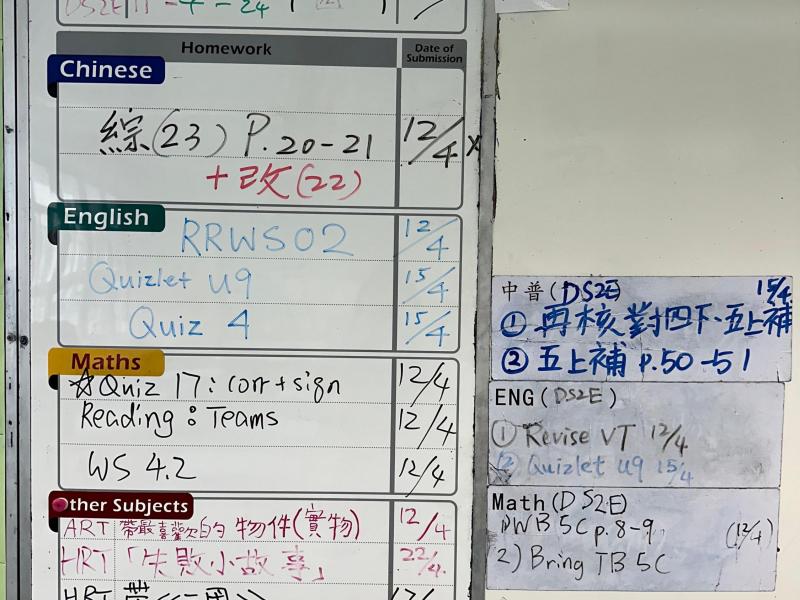 Homework
Date of Submission
Chinese
綜(23) P.20-21 12/4 x
+改(22)
English
RRWS02 12/4
Quizlet u9 15/4
Quiz 4 15/4
Maths
☆Quiz 17: corr + sign 12/4
Reading: Teams 12/4
WS 4.2 12/4
Other Subjects
ART 帶最喜歡的物件(實物) 12/4
HRT 「失敗小故事」 22/4
HRT 帶
中普(DS2E) 15/4
① 再核對四下、五上補
② 五上補 P.50-51
ENG (DS2E)
① Revise VT 12/4
② Quizlet u9 15/4
Math (DS2E)
PWB 5C p.8-9 (12/4)
2) Bring TB 5C